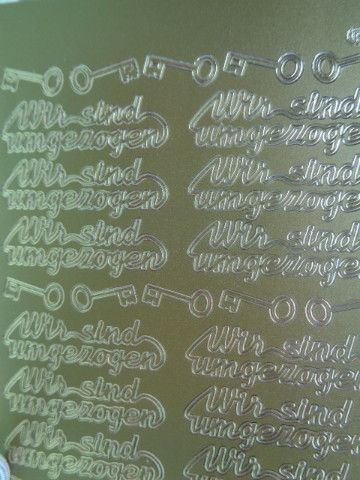 Wir sind
umgezogen
Wir sind
umgezogen
Wir sind
umgezogen
Wir sind
umgezogen
Wir sind
umgezogen
Wir sind
umgezogen
Wir sind
umgezogen
Wir sind
umgezogen
Wir sind
umgezogen
Wir sind
umgezogen
Wir sind
umgezogen
Wir sind
umgezogen